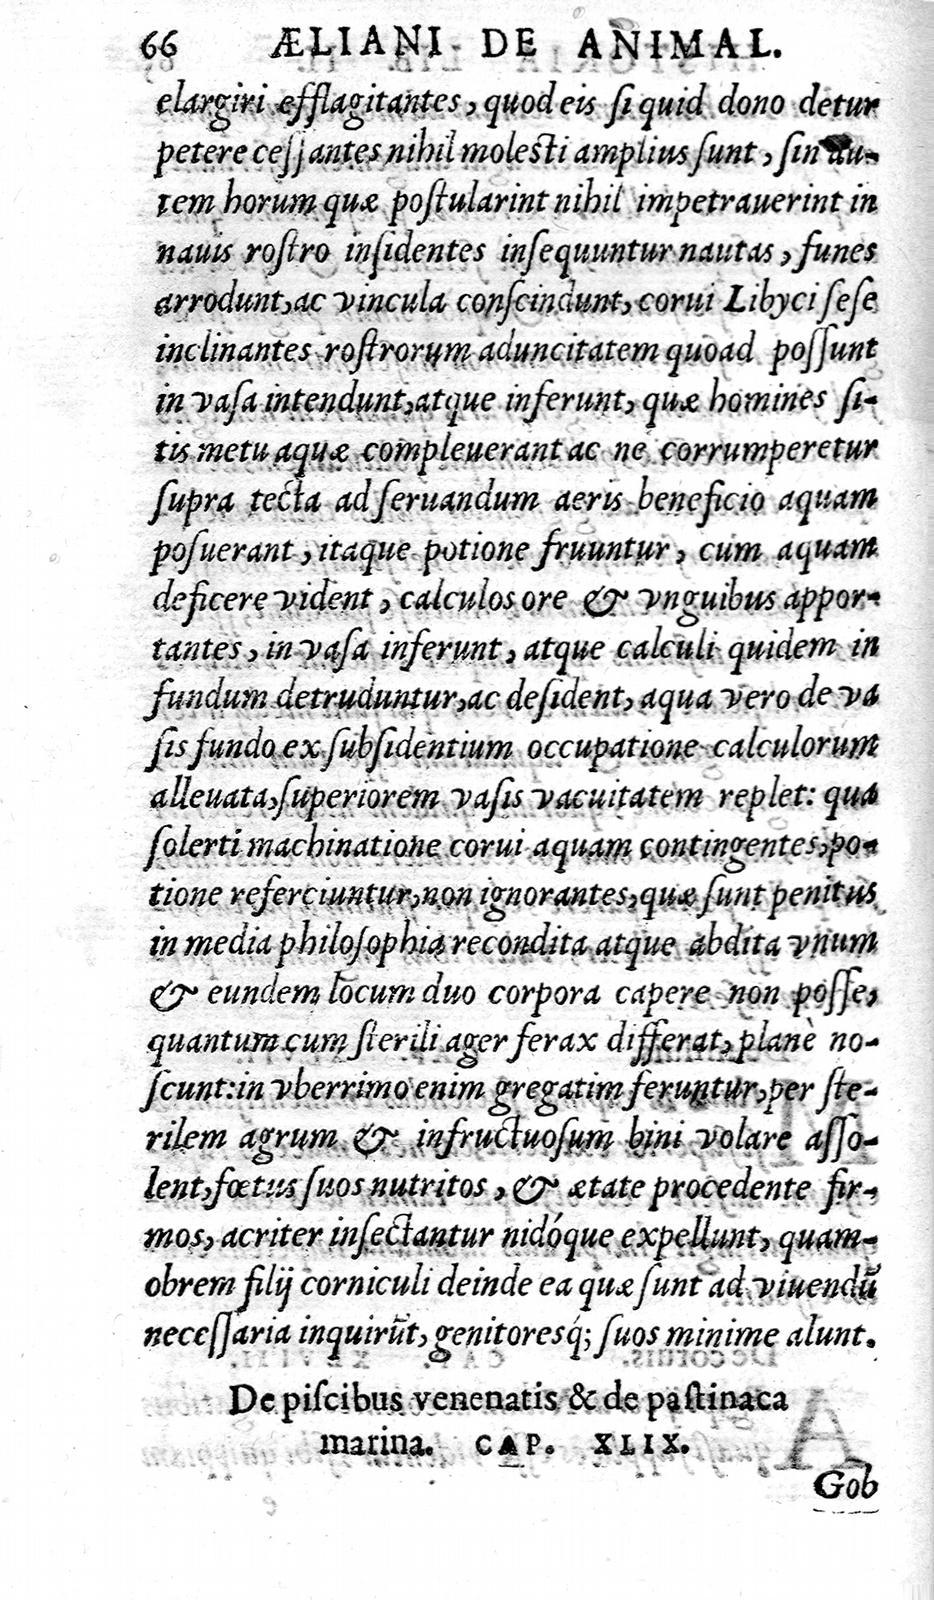 66 ÆLIANI DE ANIMAL.
elargiri efflagitantes, quod eis ſi quid dono detur
petere ceſſantes nihil moleſti amplius ſunt, ſin au-
tem horum quæ poſtularint nihil impetrauerint in
nauis roſtro inſidentes inſequuntur nautas, funes
arrodunt, ac vincula conſcindunt, corui Libyci ſeſe
inclinantes roſtrorum aduncitatem quoad poſſunt
in vaſa intendunt, atque inferunt, quæ homines ſi-
tis metu aquæ compleuerant ac ne corrumperetur
ſupra tecta ad ſeruandum aeris beneficio aquam
poſuerant, itaque potione fruuntur, cum aquam
deficere vident, calculos ore & vnguibus appor-
tantes, in vaſa inferunt, atque calculi quidem in
fundum detruduntur, ac deſident, aqua vero de va
ſis fundo ex ſubſidentium occupatione calculorum
alleuata, ſuperiorem vaſis vacuitatem replet: qua
ſolerti machinatione corui aquam contingentes, po-
tione referciuntur, non ignorantes, quæ ſunt penitus
in media philoſophia recondita atque abdita vnum
& eundem locum duo corpora capere non poſſe,
quantum cum ſterili ager ferax differat, planè no-
ſcunt: in vberrimo enim gregatim feruntur, per ſte-
rilem agrum & infructuoſum bini volare aſſo-
lent, fœtus ſuos nutritos, & ætate procedente fir-
mos, acriter inſectantur nidóque expellunt, quam-
obrem filij corniculi deinde ea quæ ſunt ad viuendũ
neceſſaria inquirũt, genitoresq́; ſuos minime alunt.
De piſcibus venenatis & de paſtinaca
marina. CAP. XLIX.
Gob